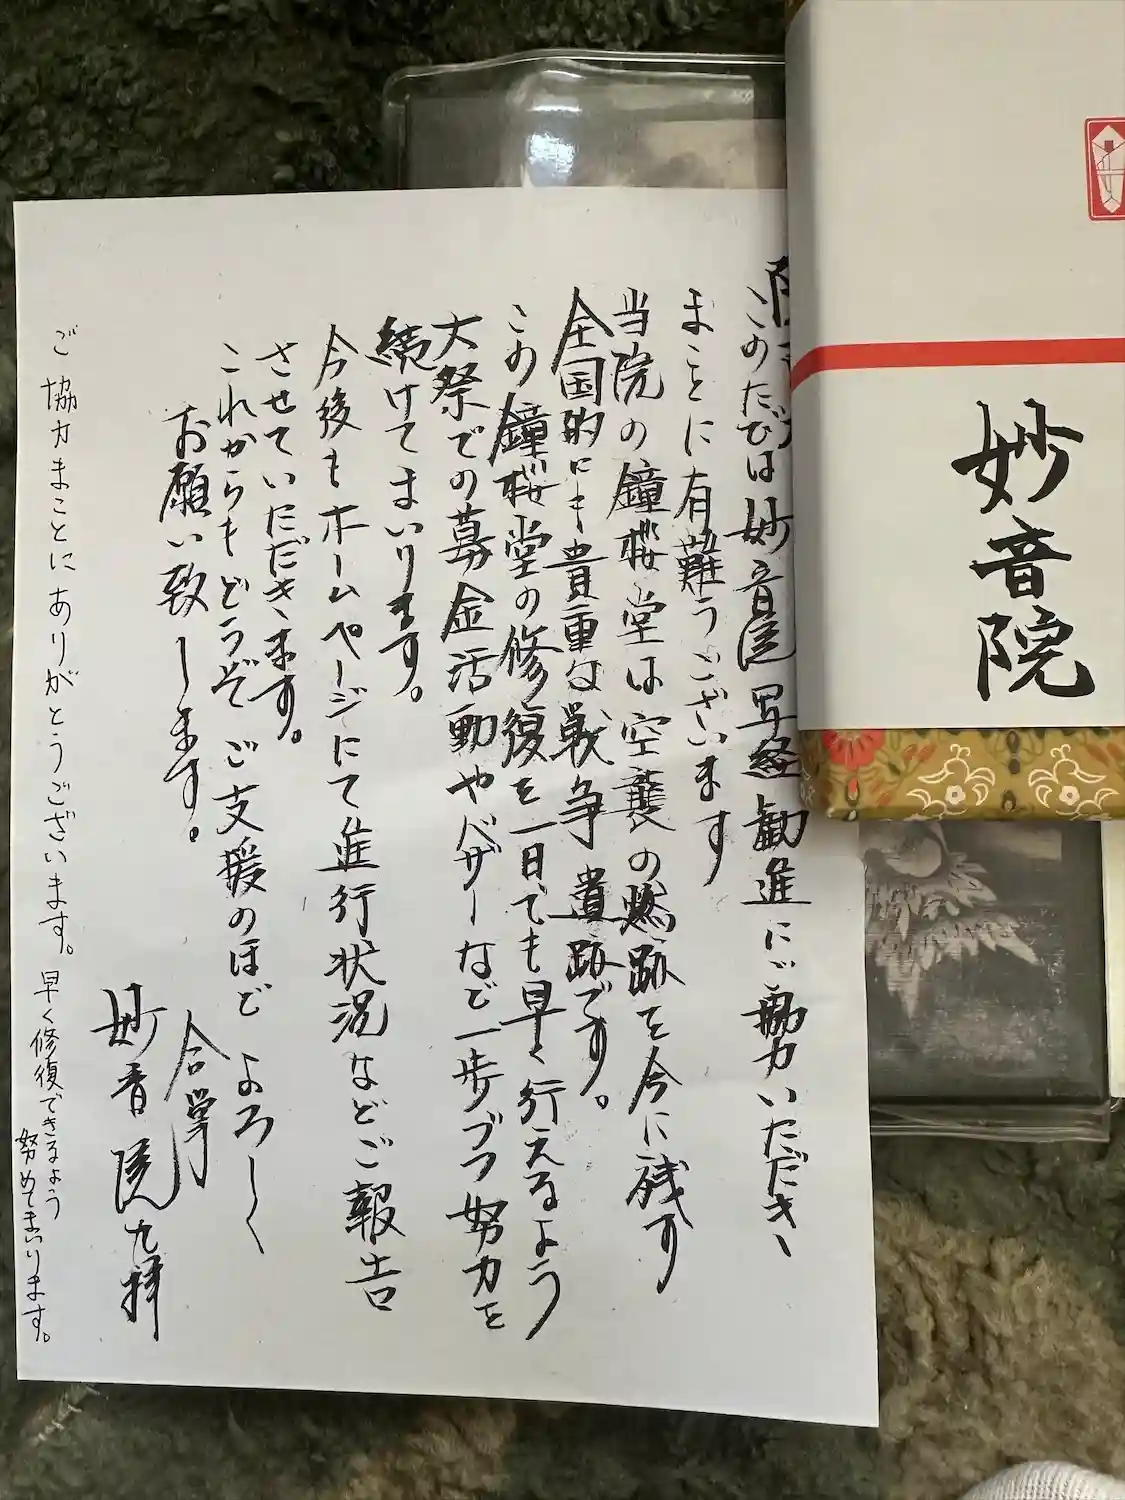 このたびは妙音院写経勧進にご助力いただき、
まことに有難うございます
当院の鐘楼堂は空襲の燃跡を今に残す
全国的にも貴重な戦争遺跡です。
この鐘楼堂の修復を一日でも早く行えるよう
大祭での募金活動やバザーなど一歩づつ努力を
続けてまいります。
今後もホームページにて進行状況などご報告
させていただきます。
これからもどうぞご支援のほどよろしく
お願い致します。
合掌
妙音院 九拝
ご協力まことにありがとうございます。早く修復できるよう
努めてまいります。
妙音院